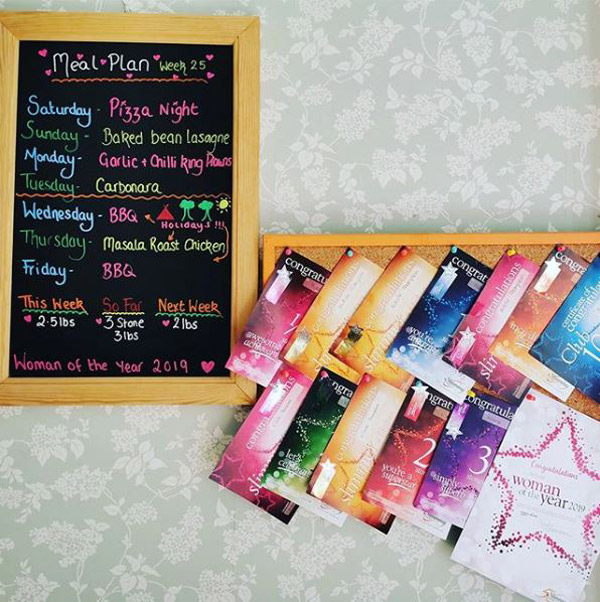 Meal Plan Week 25
Saturday - Pizza Night
Sunday - Baked bean lasagne
Monday - Garlic + Chilli king Prawns
Tuesday - Carbonara
Wednesday - BBQ
Holidays !!!
Thursday - Masala Roast Chicken
Friday - BBQ
This Week So Far Next Week
2.5lbs 3 Stone 2lbs
3lbs
Woman of the Year 2019
congratu
congrat
congratulations
congratu
certificate of
congratul
Club 10
you're
amazing
slim
1
awesome
congratulations
ngrat
ngrat
ongratula
let's
celebrate
2
you're a
superstar
3
simply
superb
Congratulations
woman
of the year 2019